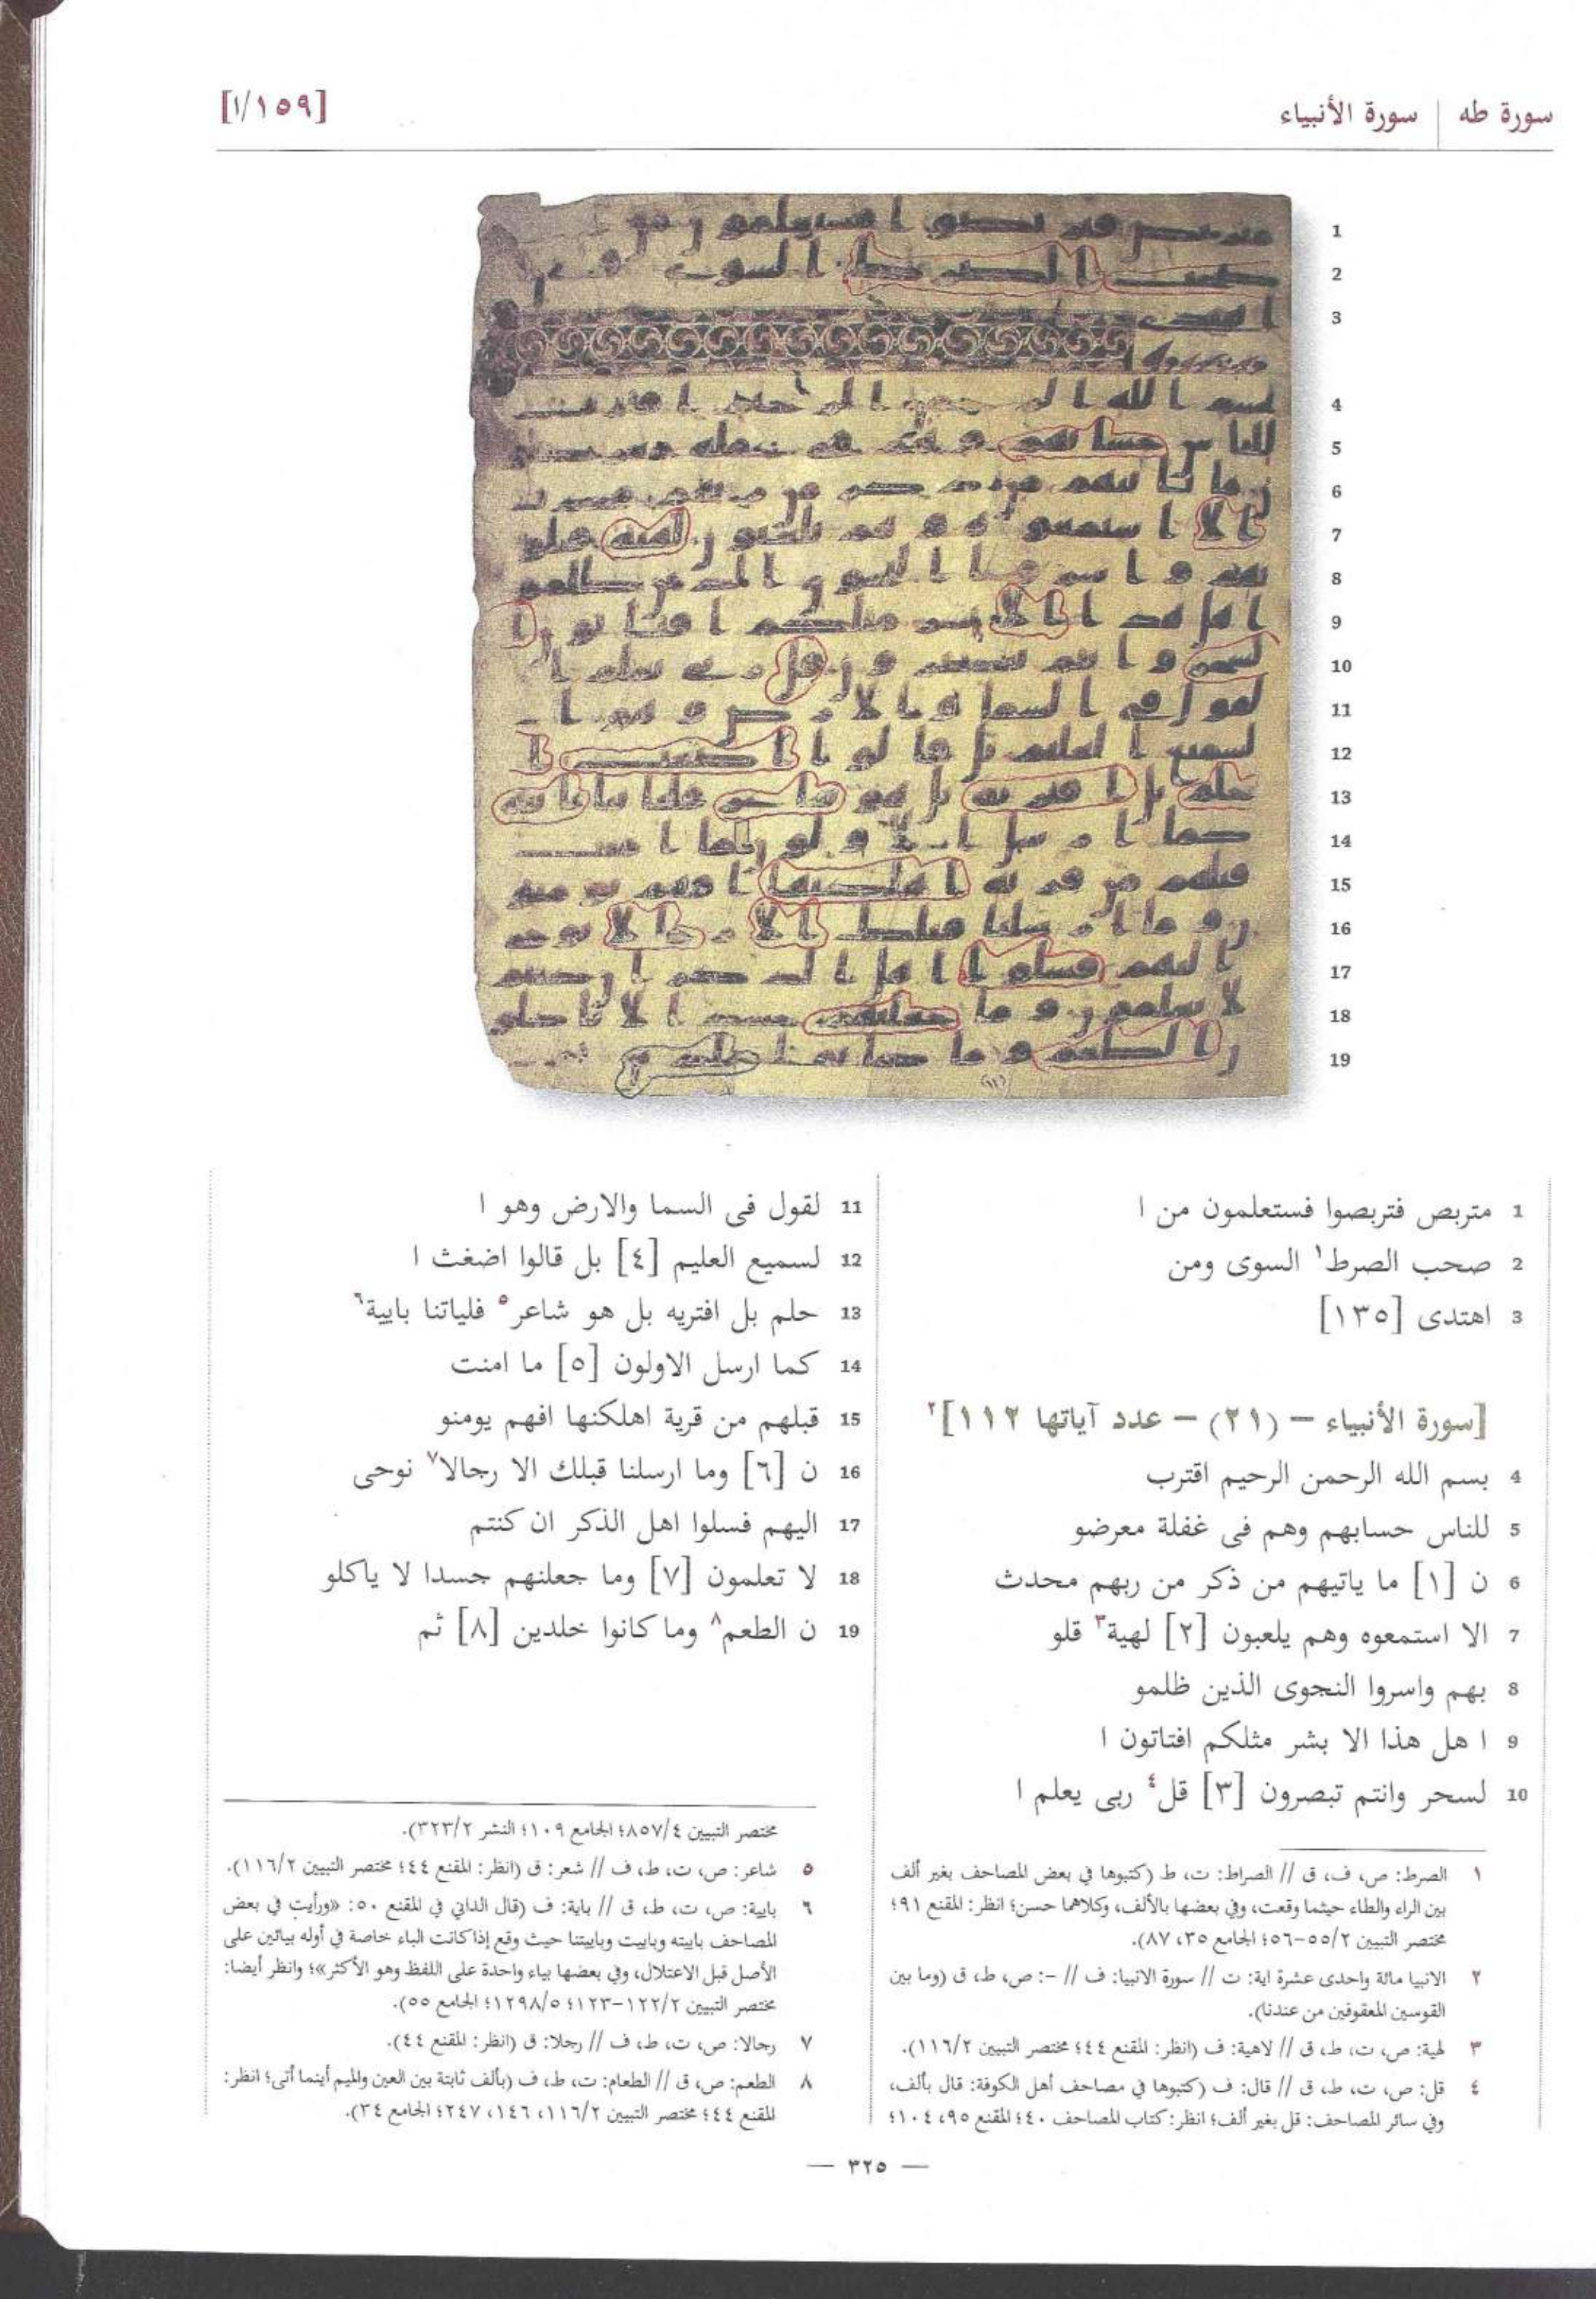 سورة طه | سورة الأنبياء
[١/١٥٩]
1 متربص فتربصوا فستعلمون من ا
2 صحب الصرط١ السوى ومن
3 اهتدى [١٣٥]
[سورة الأنبياء – (٢١) – عدد آياتها ١١٢]٢
4 بسم الله الرحمن الرحيم اقترب
5 للناس حسابهم وهم فى غفلة معرضو
6 ن [١] ما ياتيهم من ذكر من ربهم محدث
7 الا استمعوه وهم يلعبون [٢] لهية٣ قلو
8 بهم واسروا النجوى الذين ظلمو
9 ا هل هذا الا بشر مثلكم افتاتون ا
10 لسحر وانتم تبصرون [٣] قل٤ ربى يعلم ا
11 لقول فى السما والارض وهو ا
12 لسميع العليم [٤] بل قالوا اضغث ا
13 حلم بل افتريه بل هو شاعر٥ فلياتنا بايية٦
14 كما ارسل الاولون [٥] ما امنت
15 قبلهم من قرية اهلكنها افهم يومنو
16 ن [٦] وما ارسلنا قبلك الا رجالا٧ نوحى
17 اليهم فسلوا اهل الذكر ان كنتم
18 لا تعلمون [٧] وما جعلنهم جسدا لا ياكلو
19 ن الطعم٨ وما كانوا خلدين [٨] ثم
١ الصرط: ص، ف، ق // الصراط: ت، ط (كتبوها في بعض المصاحف بغير ألف
بين الراء والطاء حيثما وقعت، وفي بعضها بالألف، وكلاهما حسن؛ انظر: المقنع ٩١؛
مختصر التبيين ٥٥/٢-٥٦؛ الجامع ٣٥، ٨٧).
٢ الانبيا مائة واحدى عشرة اية: ت // سورة الانبيا: ف // -: ص، ط، ق (وما بين
القوسين المعقوفين من عندنا).
٣ لهية: ص، ت، ط، ق // لاهية: ف (انظر: المقنع ٤٤؛ مختصر التبيين ١١٦/٢).
٤ قل: ص، ت، ط، ق // قال: ف (كتبوها في مصاحف أهل الكوفة: قال بألف،
وفي سائر المصاحف: قل بغير ألف؛ انظر: كتاب المصاحف ٤٠؛ المقنع ٩٥، ١٠٤؛
مختصر التبيين ٨٥٧/٤؛ الجامع ١٠٩؛ النشر ٣٢٣/٢).
٥ شاعر: ص، ت، ط، ف // شعر: ق (انظر: المقنع ٤٤؛ مختصر التبيين ١١٦/٢).
٦ بايية: ص، ت، ط، ق // باية: ف (قال الداني في المقنع ٥٠: «ورأيت في بعض
المصاحف باييته وباييت وباييتنا حيث وقع إذا كانت الباء خاصة في أوله بيائين على
الأصل قبل الاعتلال، وفي بعضها بياء واحدة على اللفظ وهو الأكثر»؛ وانظر أيضا:
مختصر التبيين ١٢٢/٢-١٢٣؛ ١٢٩٨/٥؛ الجامع ٥٥).
٧ رجالا: ص، ت، ط، ف // رجلا: ق (انظر: المقنع ٤٤).
٨ الطعم: ص، ق // الطعام: ت، ط، ف (بألف ثابتة بين العين والميم أينما أتى؛ انظر:
المقنع ٤٤؛ مختصر التبيين ١١٦/٢، ١٤٦، ٢٤٧؛ الجامع ٣٤).
— ٣٢٥ —